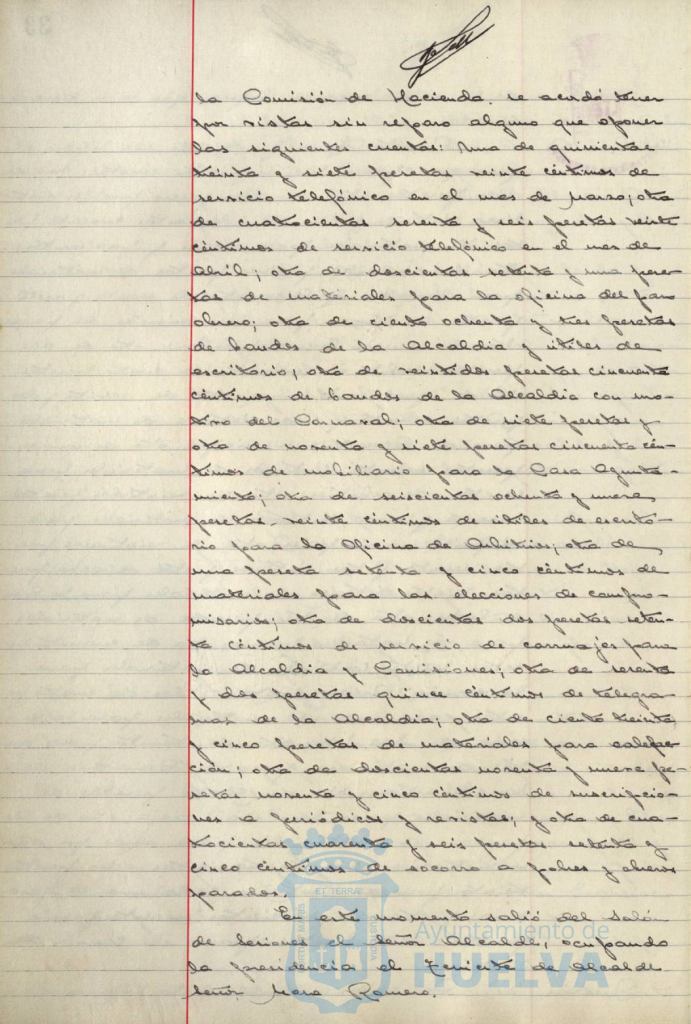 la Comisión de Hacienda. se acordó tener
por vistas sin reparo alguno que oponer
las siguientes cuentas: Una de quinientas
treinta y siete pesetas veinte céntimos de
servicio telefónico en el mes de Marzo; otra
de cuatrocientas sesenta y seis pesetas veinte
céntimos de servicio telefónico en el mes de
Abril; otra de doscientas setenta y una pese-
tas de materiales para la oficina del paro
obrero; otra de ciento ochenta y tres pesetas
de bandos de la Alcaldía y útiles de
escritorio; otra de veintidos pesetas cincuenta
céntimos de bandos de la Alcaldía con mo-
tivo del Carnaval; otra de siete pesetas y
otra de noventa y siete pesetas cincuenta cén-
timos de mobiliario para la Casa Ayunta-
miento; otra de seiscientas ochenta y nueve
pesetas veinte céntimos de útiles de escrito-
rio para la Oficina de Arbitrios; otra de
una peseta setenta y cinco céntimos de
materiales para las elecciones de compro-
misarios; otra de doscientas dos pesetas seten-
ta céntimos de servicio de carruajes para
la Alcaldía y Comisiones; otra de sesenta
y dos pesetas quince céntimos de telegra-
mas de la Alcaldía; otra de ciento treinta
y cinco pesetas de materiales para calefac-
ción; otra de doscientas noventa y nueve pe-
setas noventa y cinco céntimos de suscripcio-
nes a periódicos y revistas; y otra de cua-
trocientas cuarenta y seis pesetas setenta y
cinco céntimos de socorro a pobres y obreros
parados.
En este momento salió del salón
de sesiones el señor Alcalde, ocupando
la presidencia el Teniente de Alcalde
señor Mora Romero.
ET TERRAE
Ayuntamiento de
HUELVA